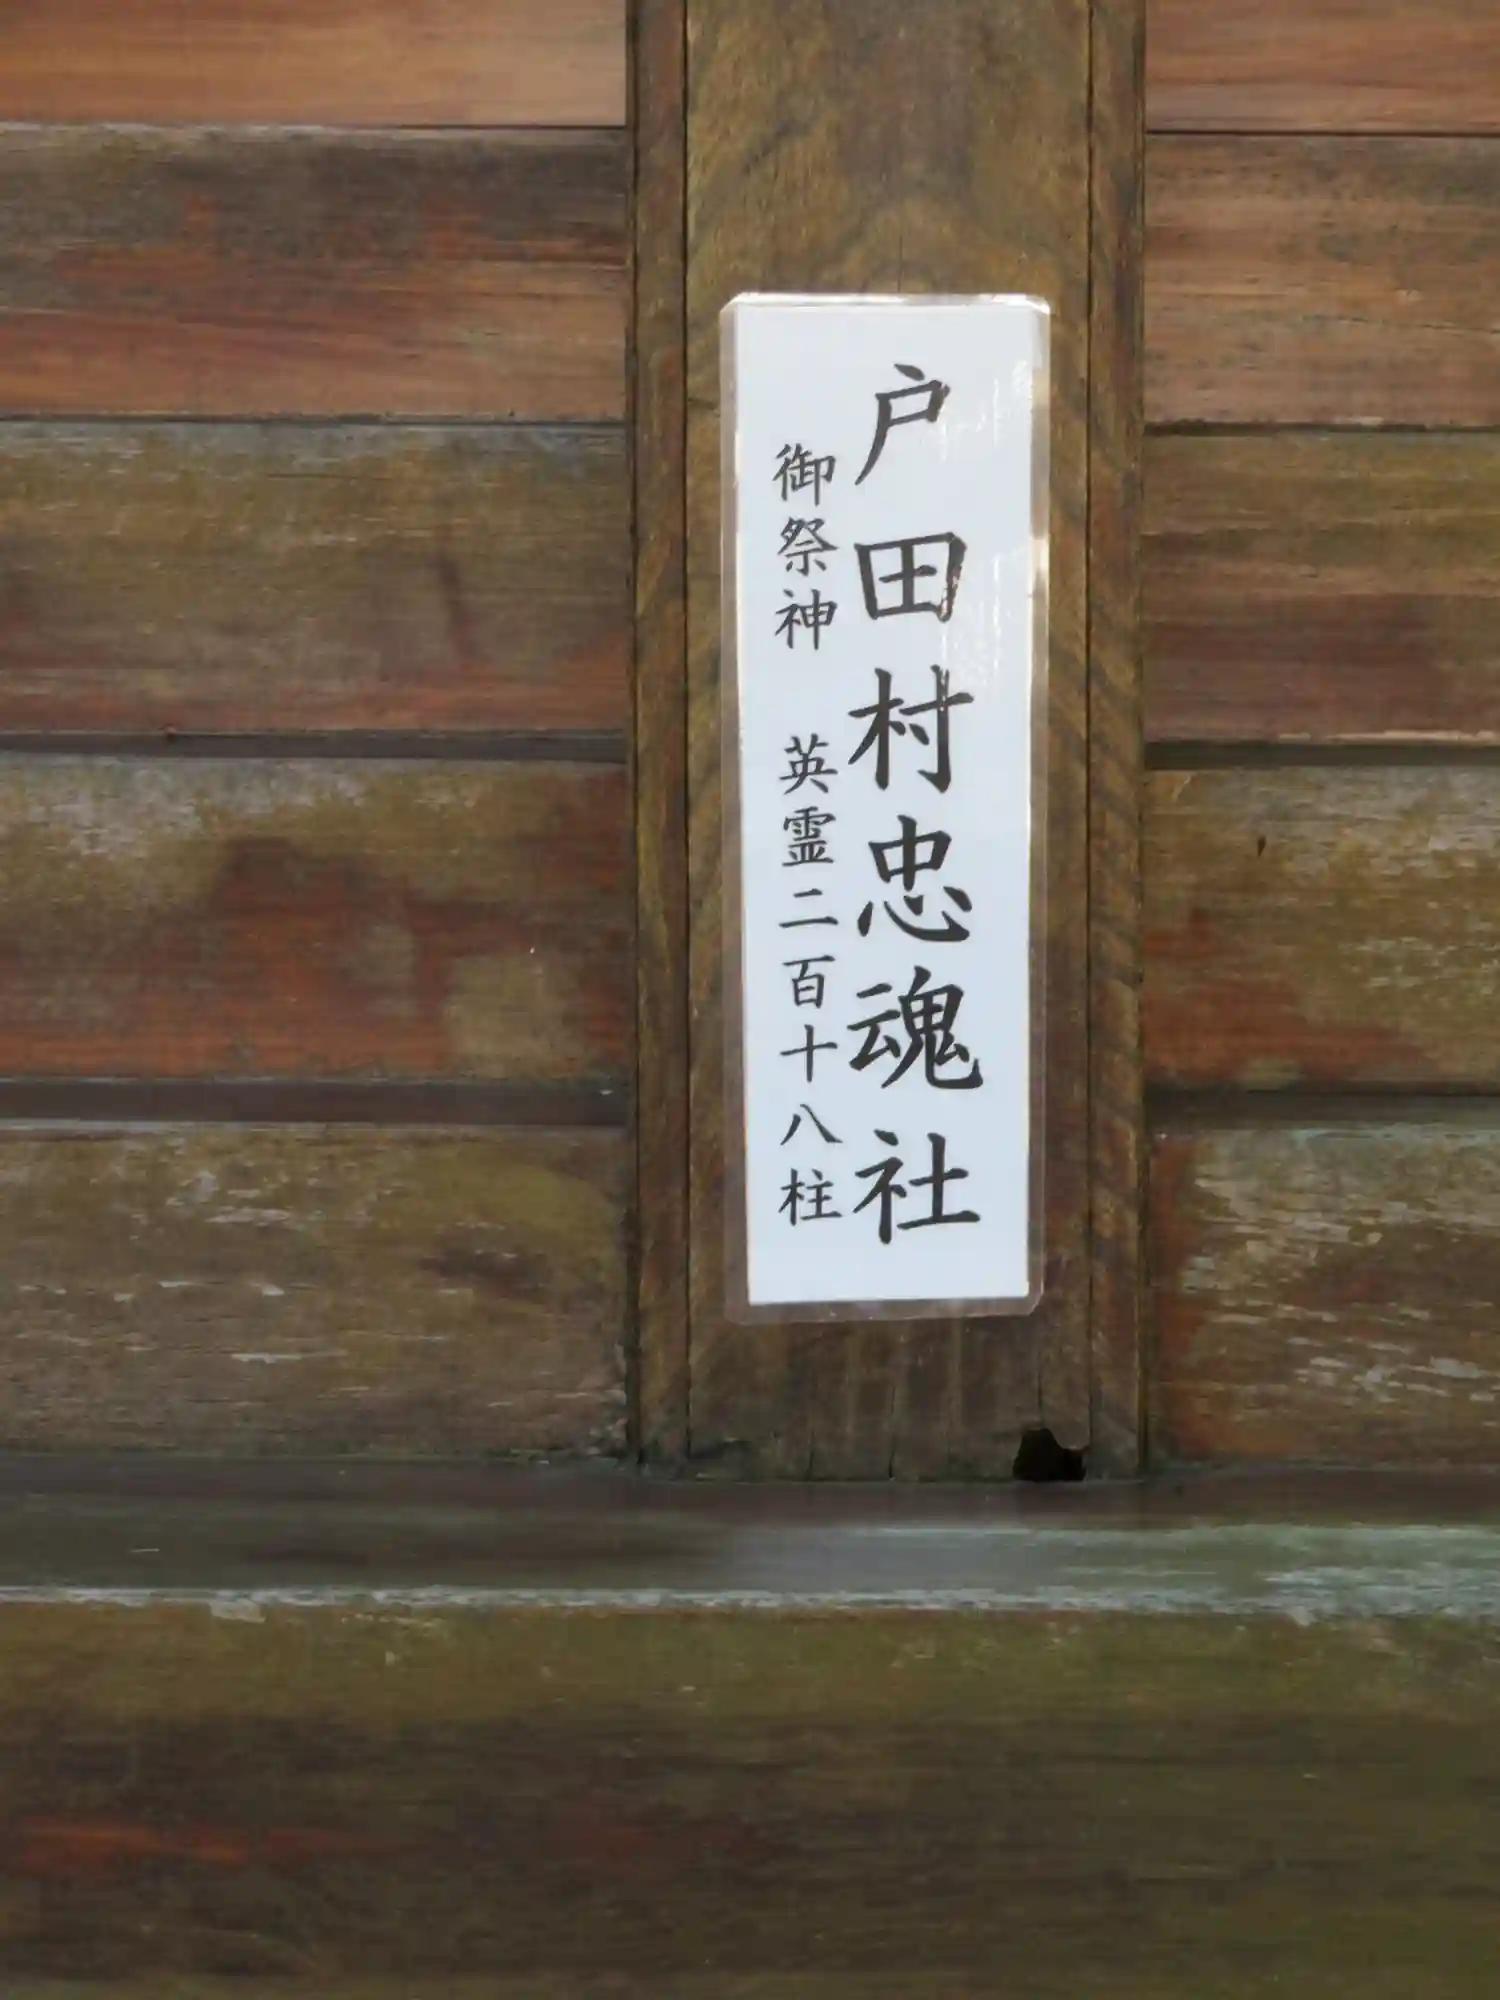 戸田村忠魂社
御祭神 英霊二百十八柱